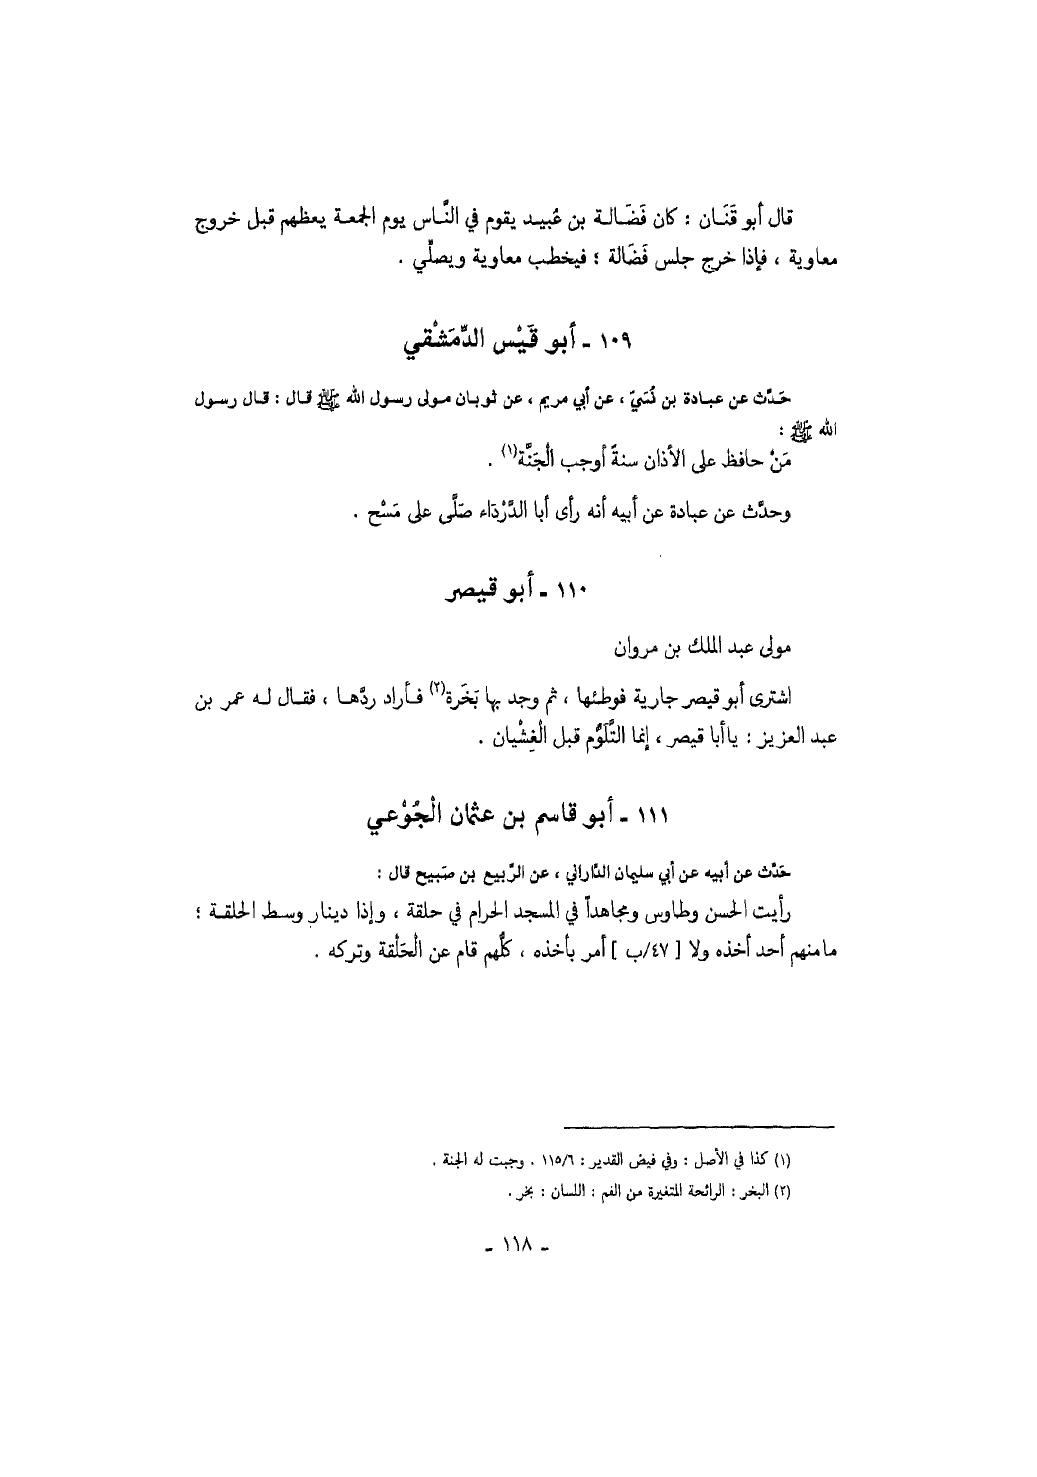 قال أبو قَنَان : كان فَضَالة بن عُبيد يقوم في النَّاس يوم الجمعة يعظهم قبل خروج
معاوية ، فإذا خرج جلس فَضَالة ؛ فيخطب معاوية ويصلِّي .
١٠٩ ـ أبو قَيْس الدِّمَشْقي
حَدَّث عن عبادة بن نُسَيّ ، عن أبي مريم ، عن ثوبان مولى رسول الله ﷺ قال : قال رسول
الله ﷺ :
مَنْ حافظ على الأذان سنةً أوجب الْجَنَّة(١) .
وحدَّث عن عبادة عن أبيه أنه رأى أبا الدَّرْدَاء صَلَّى على مَسْح .
١١٠ ـ أبو قيصر
مولى عبد الملك بن مروان
اشترى أبو قيصر جارية فوطئها ، ثم وجد بها بَخَرة(٢) فأراد ردَّها ، فقال له عمر بن
عبد العزيز : ياأبا قيصر ، إنما التَّلَوُّم قبل الْغِشْيان .
١١١ ـ أبو قاسم بن عثمان الْجُوْعي
حَدَّث عن أبيه عن أبي سليمان الدَّاراني ، عن الرَّبيع بن صَبيح قال :
رأيت الحسن وطاوس ومجاهداً في المسجد الحرام في حلقة ، وإذا دينار وسط الحلقة ؛
مامنهم أحد أخذه ولا [ ٤٧/ب ] أمر بأخذه ، كلُّهم قام عن الْحَلْقة وتركه .
(١) كذا في الأصل : وفي فيض القدير : ١١٥/٦ . وجبت له الجنة .
(٢) البخر : الرائحة المتغيرة من الفم : اللسان : بخر .
ـ ١١٨ ـ